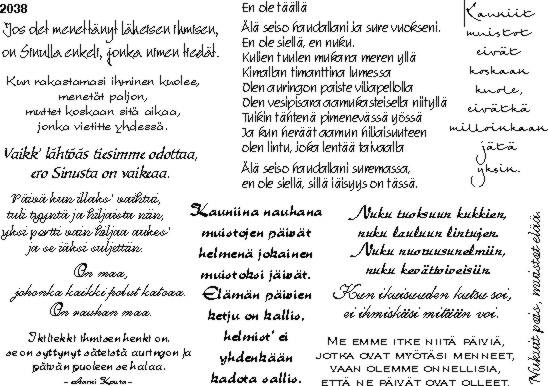 2038
Jos olet menettänyt läheisen ihmisen,
on Sinulla enkeli, jonka nimen tiedät.
Kun rakastamasi ihminen kuolee,
menetät paljon,
muttet koskaan sitä aikaa,
jonka vietitte yhdessä.
Vaikk' lähtöäs tiesimme odottaa,
ero Sinusta on vaikeaa.
Päivä kun illaks' vaihtui,
tuli tyyntä ja hiljaista niin,
yksi portti vain hiljaa aukes'
ja se jäksi suljettiin.
On maa,
johonka kaikki polut katoaa.
On rauhan maa.
Ikiliekki ihmisen henki on,
se on syttynyt säteistä auringon ja
päivän puoleen se halaa.
En ole täällä
Älä seiso haudallani ja sure vuokseni.
En ole siellä, en nuku.
Kuljen tuulen mukana meren yllä
Kimallan timanttina lumessa
Olen auringon paiste viljapellolla
Olen vesipisara aamukasteisella niityllä
Tuikin tähtenä pimenevässä yössä
Ja kun heräät aamun hiljaisuuteen
olen lintu, joka lentää taivaalla
Älä seiso haudallani suremassa,
en ole siellä, sillä iäisyys on tässä.
Kauniit
muistot
eivät
koskaan
kuole,
eivätkä
milloinkaan
jätä
yksin.
Kauniina nauhana
muistojen päivät
helmenä jokainen
muistoksi jäivät.
Elämän päivien
ketju on kallis,
helmist' ei
yhdenkään
kadota sallis.
Nuku tuoksuun kukkien,
nuku lauluun lintujen.
Nuku nurmusunelmiin,
nuku kevättoiveisiin
Kun ikuisuuden kutsu soi,
ei ihmiskäsi mitään voi.
Me emme itke niitä päiviä,
jotka ovat myötäsi menneet,
vaan olemme onnellisia,
että ne päivät ovat olleet.
Nukuit pois, muistot elää.